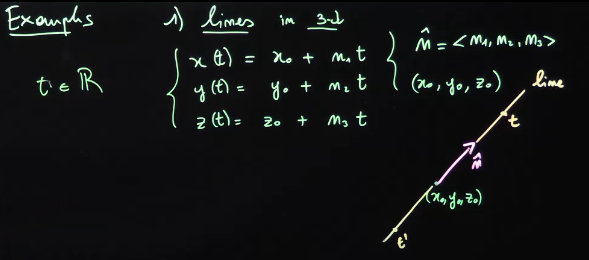 Examples 1) lines in 3-d
t ∈ ℝ
x(t) = x₀ + m₁ t
y(t) = y₀ + m₂ t
z(t) = z₀ + m₃ t
m̂ = <m₁, m₂, m₃>
(x₀, y₀, z₀)
line
t
m̂
(x₀, y₀, z₀)
t'